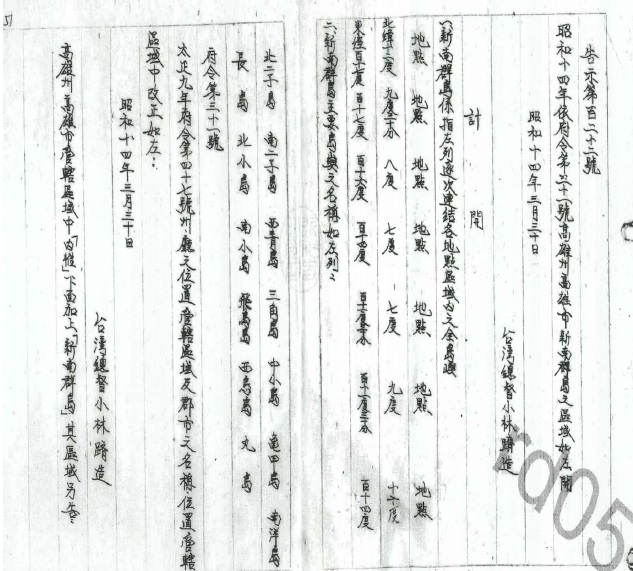 告示第百二十二號
昭和十四年依府令第三十一號高雄州高雄市新南群島之區域如左開
昭和十四年三月三十日
台灣總督小林躋造
計開
一、新南群島係指左列逐次連結各地點區域內之全島嶼
地點 地點 地點 地點 地點 地點 地點
北緯十二度 九度三十分 八度 七度 七度 九度 十二度
東徑百十七度 百十七度 百十六度 百十四度 百十一度三十分 百十一度三十分 百十四度
二、新南群島主要島嶼之名稱如左列:
北二子島 南二子島 西青島 三角島 中小島 龜甲島 南洋島
長島 北小島 南小島 飛鳥島 西鳥島 丸島
府令第三十一號
大正九年府令第四十七號州、廳之位置管轄區域及郡市之名稱、位置、管轄
區域中改正如左:
昭和十四年三月三十日
台灣總督小林躋造
高雄州高雄市管轄區域中「內惟」下面加上「新南群島」其區域另告。
51
rd05